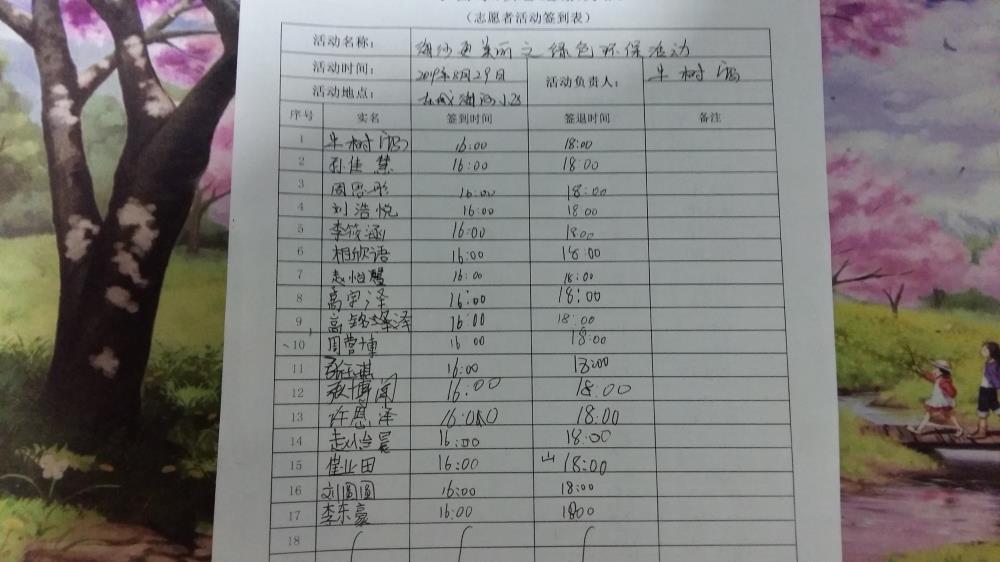 （志愿者活动签到表）
活动名称： 更美丽之绿色环保活动
活动时间： 2019年8月29日 活动负责人： 牛树
活动地点：
序号 实名 签到时间 签退时间 备注
1 牛树 16:00 18:00
2 孙佳慧 16:00 18:00
3 周恩彤 16:00 18:00
4 刘浩悦 16:00 18:00
5 李筱涵 16:00 18:00
6 相欣语 16:00 18:00
7 赵怡馨 16:00 18:00
8 高宇泽 16:00 18:00
9 高铭泽 16:00 18:00
10 周营博 16:00 18:00
11 16:00 18:00
12 张博闻 16:00 18:00
13 许恩泽 16:00 18:00
14 赵怡晨 16:00 18:00
15 崔业田 16:00 18:00
16 刘圆圆 16:00 18:00
17 李东豪 16:00 1800
18